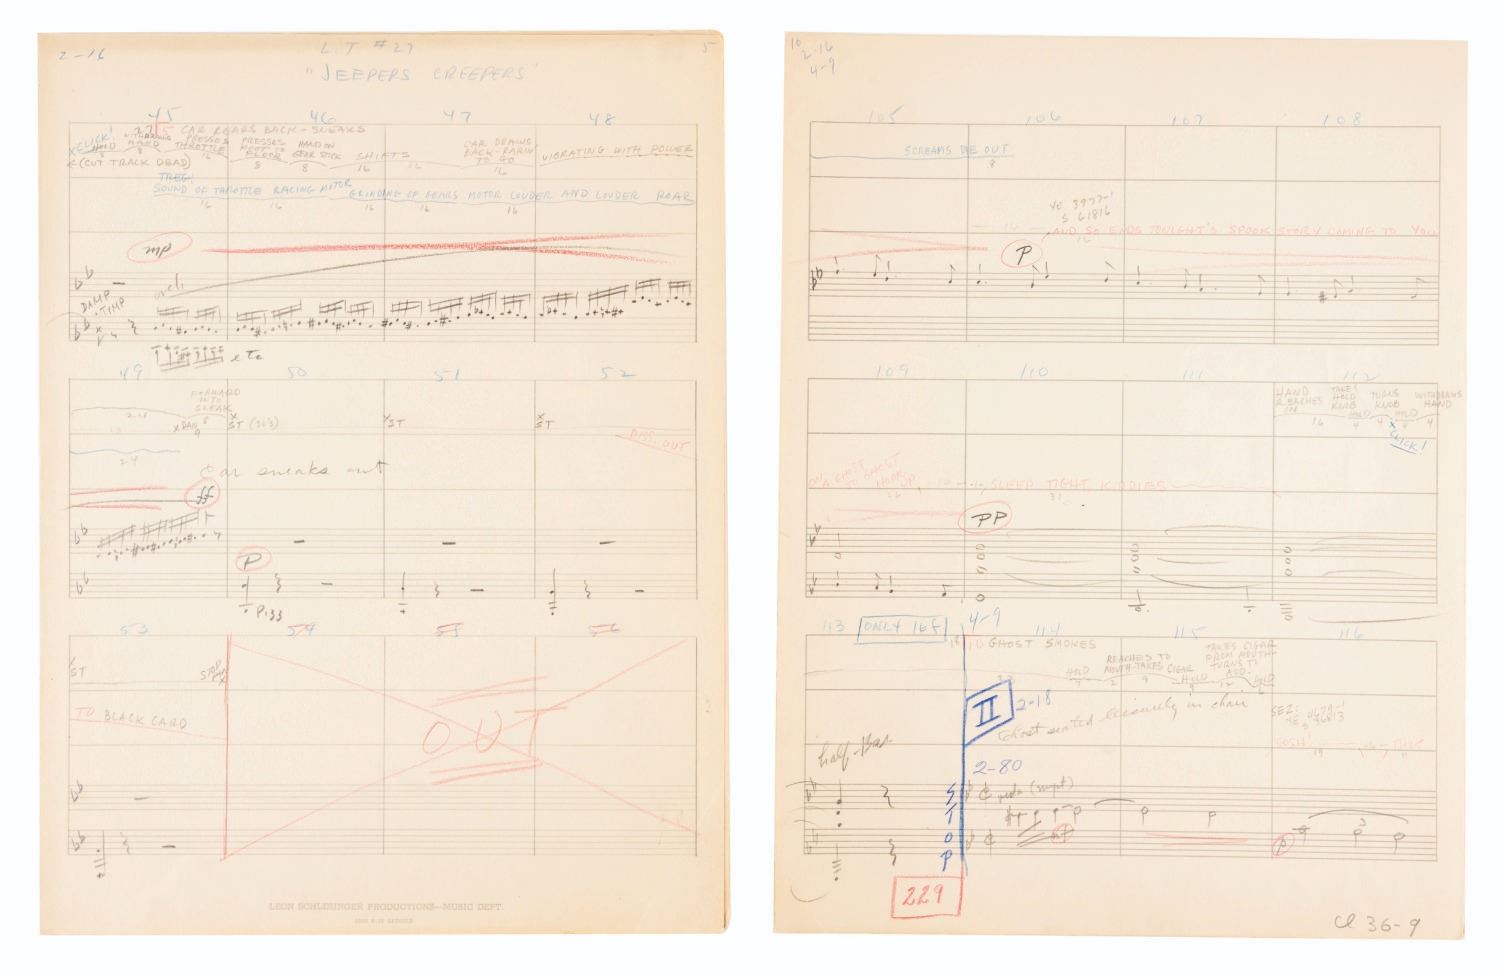 2-16
L.T #27
5
"JEEPERS CREEPERS"
45 46 47 48
CLICK!
HOLD
8
HAND
8
CAR ROARS BACK - SNEAKS
PRESSES
THROTTLE
16
PRESSES
FOOT TO
FLOOR
8
HAND ON
GEAR STICK
8
SHIFTS
16
16
CAR DRAWS
BACK - RARIN'
TO GO
16
VIBRATING WITH POWER
(CUT TRACK DEAD)
SOUND OF THROTTLE RACING MOTOR
16
16
GRINDING OF GEARS
16
16
MOTOR LOUDER AND LOUDER ROAR
16
mp
DAMP
TIMP
etc
49 50 51 52
24
FORWARD
INTO
SNEAK
8
ST (36's)
ST
ST
24
DISS. OUT
Car sneaks out
ff
P
Pizz
53 54 55 56
ST
STOP
TO BLACK CARD
OUT
LEON SCHLESINGER PRODUCTIONS—MUSIC DEPT.
10
2-16
4-9
105 106 107 108
SCREAMS DIE OUT
8
YE 3977-1
S 61816
16
AND SO ENDS TONIGHT'S SPOOK STORY COMING TO YOU
16
P
109 110 111 112
HAND
REACHES
IN
16
TAKES
HOLD
KNOB
HOLD
4
TURNS
KNOB
4
HOLD
4
WITHDRAWS
HAND
4
CLICK!
ON A GHOST
TO GHOST
HOOK UP
16
SLEEP TIGHT, KIDDIES
31
PP
113 ONLY 16f 4-9 114 115 116
GHOST SMOKES
HOLD
REACHES TO
MOUTH-TAKES CIGAR
9
HOLD
TAKES CIGAR
FROM MOUTH-
TURNS TO
AUD.
12
HOLD
II 2-18
Ghost seated leisurely in chair
SEZ:
GOSH!
half-Bar
2-80
STOP
P
229
Cl 36-9